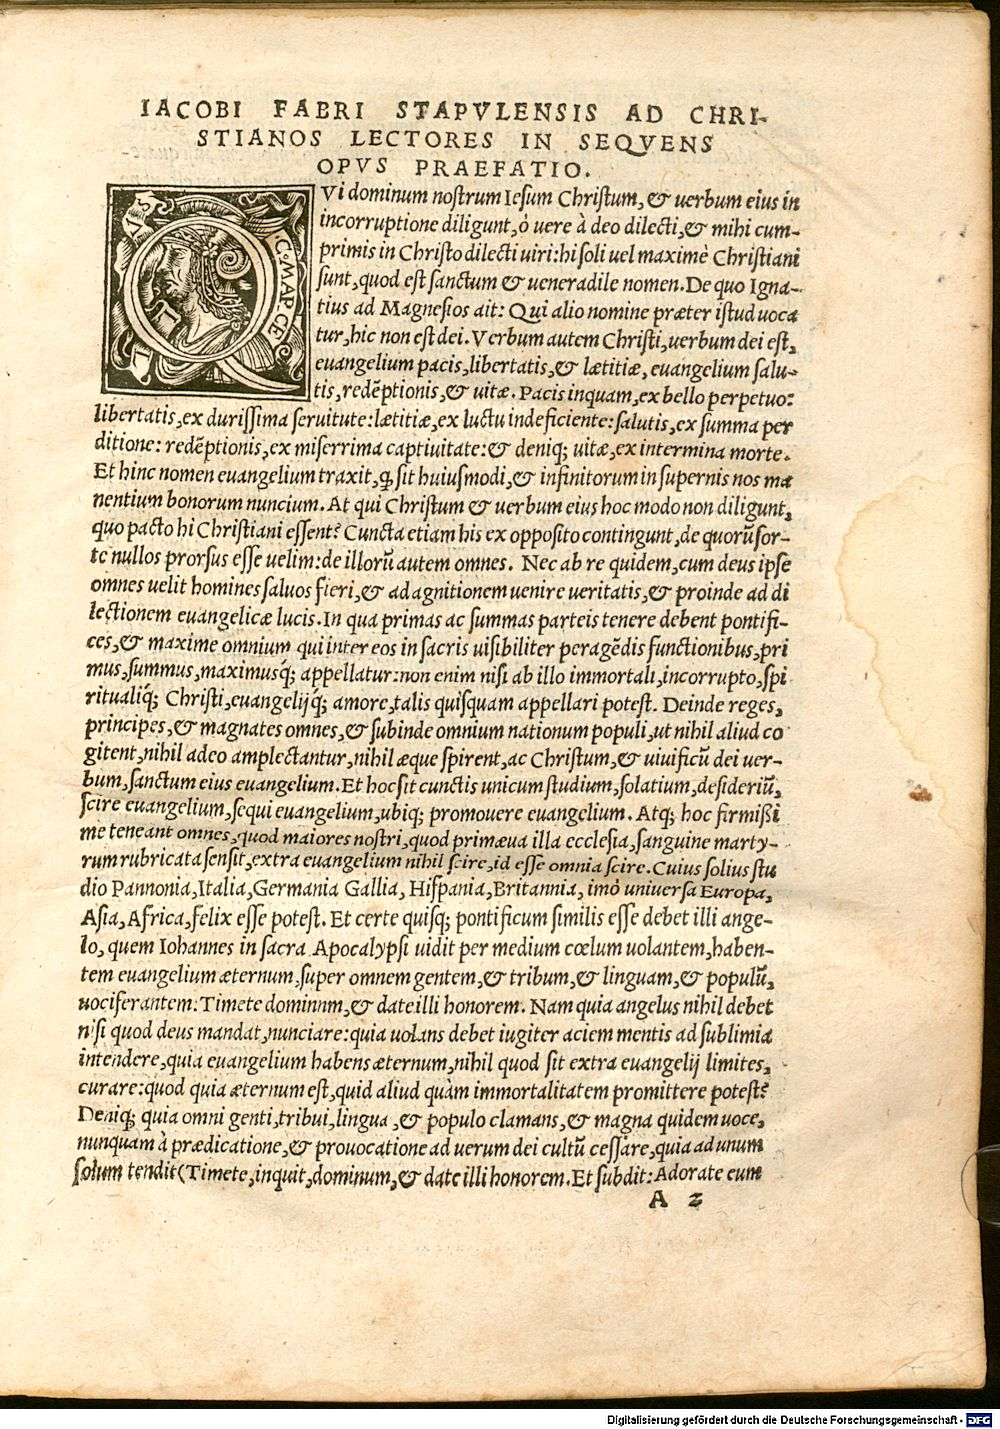 IACOBI FABRI STAPVLENSIS AD CHRI-
STIANOS LECTORES IN SEQVENS
OPVS PRAEFATIO.
QVi dominum nostrum Iesum Christum, & uerbum eius in
incorruptione diligunt, ó uere à deo dilecti, & mihi cum-
primis in Christo dilecti uiri: hi soli uel maximè Christiani
sunt, quod est sanctum & ueneradile nomen. De quo Igna-
tius ad Magnesios ait: Qui alio nomine præter istud uoca
tur, hic non est dei. Verbum autem Christi, uerbum dei est,
euangelium pacis, libertatis, & lætitiæ, euangelium salu-
tis, redẽptionis, & uitæ. Pacis inquam, ex bello perpetuo:
libertatis, ex durissima seruitute: lætitiæ, ex luctu indeficiente: salutis, ex summa per
ditione: redẽptionis, ex miserrima captiuitate: & deniq; uitæ, ex intermina morte.
Et hinc nomen euangelium traxit, ꝙ sit huiusmodi, & infinitorum in supernis nos ma
nentium bonorum nuncium. At qui Christum & uerbum eius hoc modo non diligunt,
quo pacto hi Christiani essent? Cuncta etiam his ex opposito contingunt, de quorũ sor-
te nullos prorsus esse uelim: de illorũ autem omnes. Nec ab re quidem, cum deus ipse
omnes uelit homines saluos fieri, & ad agnitionem uenire ueritatis, & proinde ad di
lectionem euangelicæ lucis. In qua primas ac summas parteis tenere debent pontifi-
ces, & maxime omnium qui inter eos in sacris uisibiliter peragẽdis functionibus, pri
mus, summus, maximusq́; appellatur: non enim nisi ab illo immortali, incorrupto, spi
ritualiq́; Christi, euangelijq́; amore, talis quisquam appellari potest. Deinde reges,
principes, & magnates omnes, & subinde omnium nationum populi, ut nihil aliud co
gitent, nihil adeo amplectantur, nihil æque spirent, ac Christum, & uiuificũ dei uer-
bum, sanctum eius euangelium. Et hoc sit cunctis unicum studium, solatium, desideriũ,
scire euangelium, sequi euangelium, ubiq; promouere euangelium. Atq; hoc firmißi
me teneant omnes, quod maiores nostri, quod primæua illa ecclesia, sanguine marty-
rum rubricata sensit, extra euangelium nihil scire, id esse omnia scire. Cuius solius stu
dio Pannonia, Italia, Germania Gallia, Hispania, Britannia, imò uniuersa Europa,
Asia, Africa, felix esse potest. Et certe quisq; pontificum similis esse debet illi ange-
lo, quem Iohannes in sacra Apocalypsi uidit per medium cœlum uolantem, haben-
tem euangelium æternum, super omnem gentem, & tribum, & linguam, & populũ,
uociferantem: Timete dominum, & date illi honorem. Nam quia angelus nihil debet
nisi quod deus mandat, nunciare: quia uolans debet iugiter aciem mentis ad sublimia
intendere, quia euangelium habens æternum, nihil quod sit extra euangelij limites,
curare: quod quia æternum est, quid aliud quàm immortalitatem promittere potest?
Deniq; quia omni genti, tribui, lingua, & populo clamans, & magna quidem uoce,
nunquam à prædicatione, & prouocatione ad uerum dei cultũ cessare, quia ad unum
solum tendit (Timete, inquit, dominum, & date illi honorem. Et subdit: Adorate eum
A 2
Digitalisierung gefördert durch die Deutsche Forschungsgemeinschaft - DFG